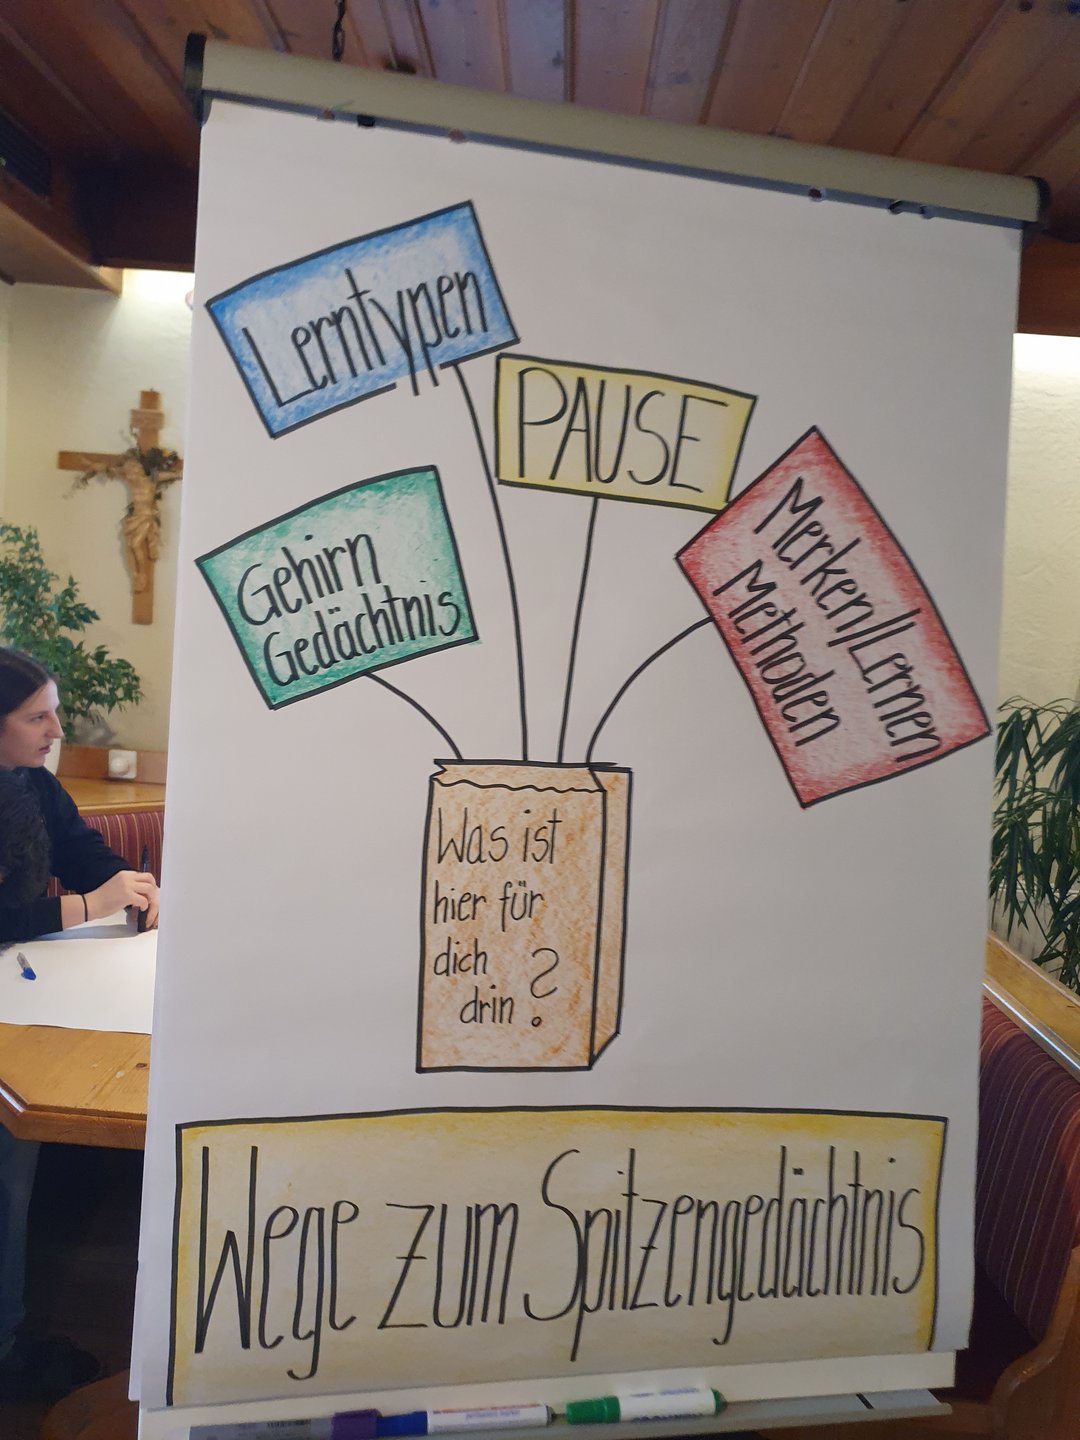 Lerntypen
PAUSE
Gehirn
Gedächtnis
Merken/Lernen
Methoden
Was ist
hier für
dich
drin ?
Wege zum Spitzengedächtnis